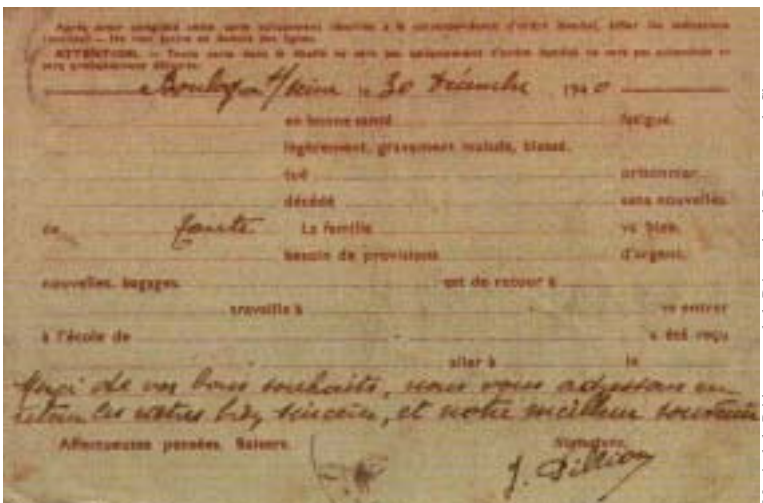 Après avoir complété cette carte strictement réservée à la correspondance d'ordre familial, biffer les indications
inutiles. — Ne rien écrire en dehors des lignes.
ATTENTION. — Toute carte dont le libellé ne sera pas uniquement d'ordre familial ne sera pas acheminée et
sera probablement détruite.
Boulogne s/Seine le 30 Décembre 1940
en bonne santé fatigué.
légèrement, gravement malade, blessé.
tué prisonnier.
décédé sans nouvelles
de La famille va bien.
besoin de provisions d'argent.
nouvelles, bagages. est de retour à
travaille à va entrer
à l'école de a été reçu
aller à le
Merci de vos bons souhaits, nous vous adressons en
retour les nôtres bien sincères, et notre meilleur souvenir
Affectueuses pensées. Baisers. Signature.
J.